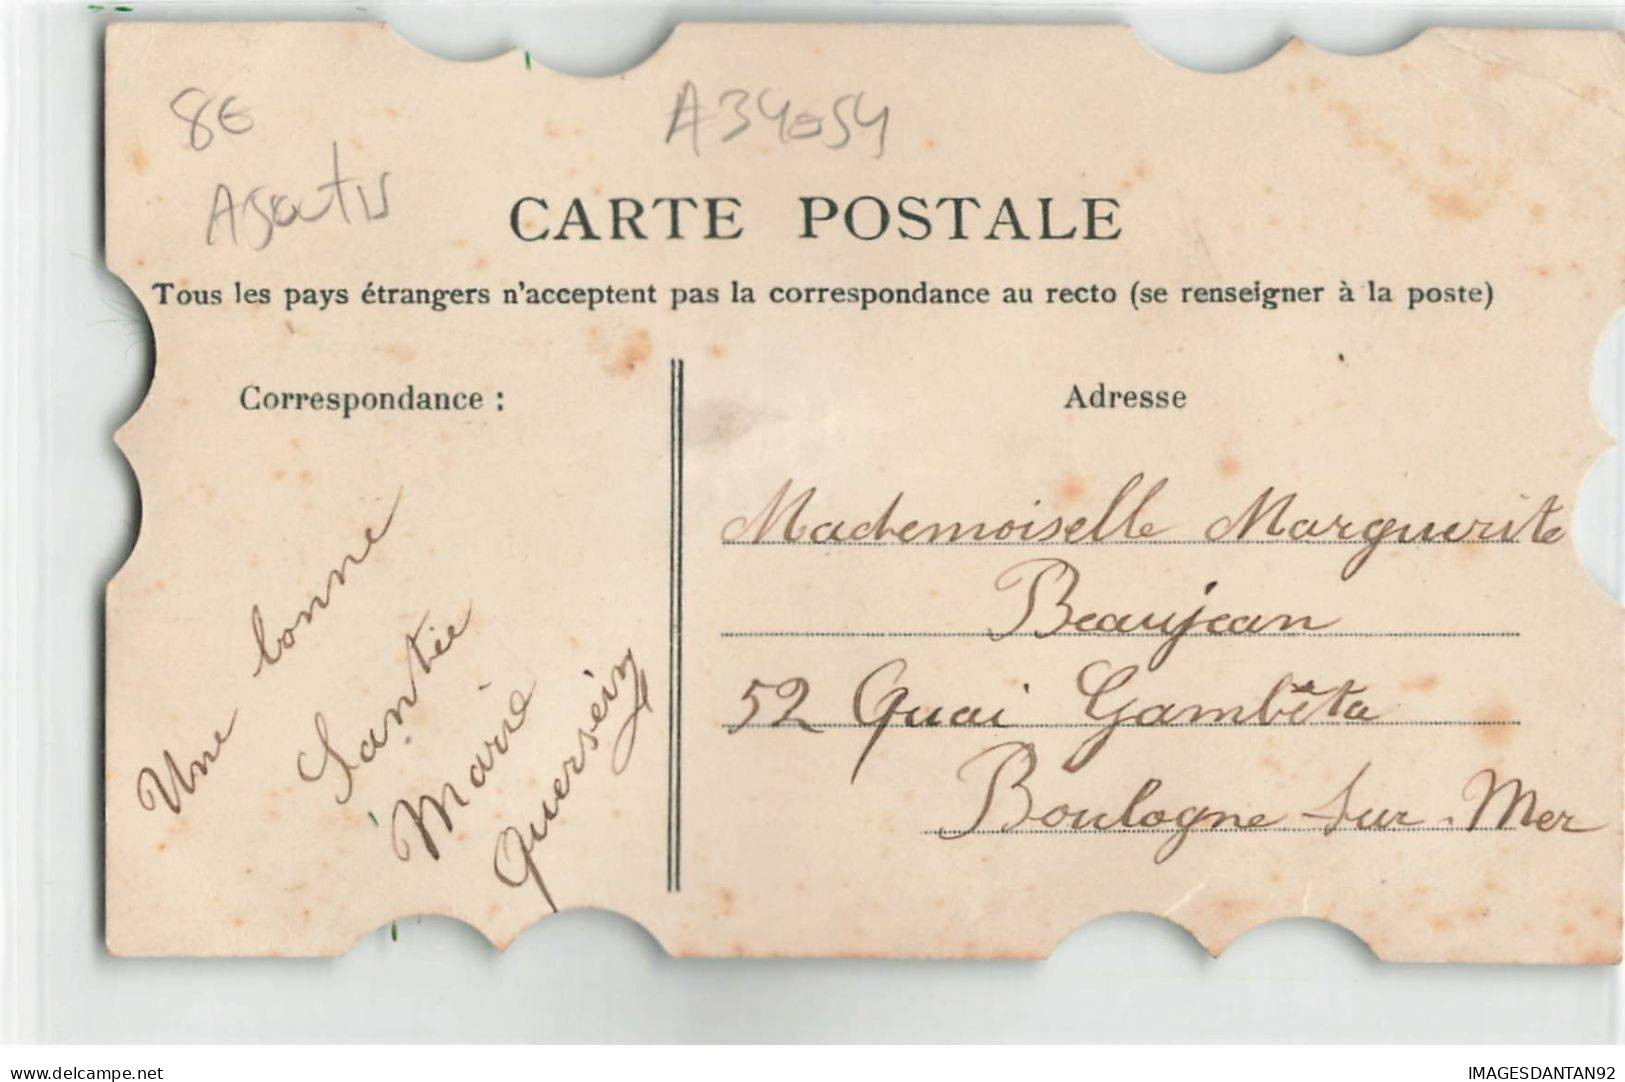 8€
A34054
Ajoutis
CARTE POSTALE
Tous les pays étrangers n'acceptent pas la correspondance au recto (se renseigner à la poste)
Correspondance :
Une bonne
Santée
Marie
Quersein
Adresse
Mademoiselle Marguerite
Beaujean
52 Quai Gambéta
Boulogne-sur-Mer
www.delcampe.net
IMAGESDANTAN92